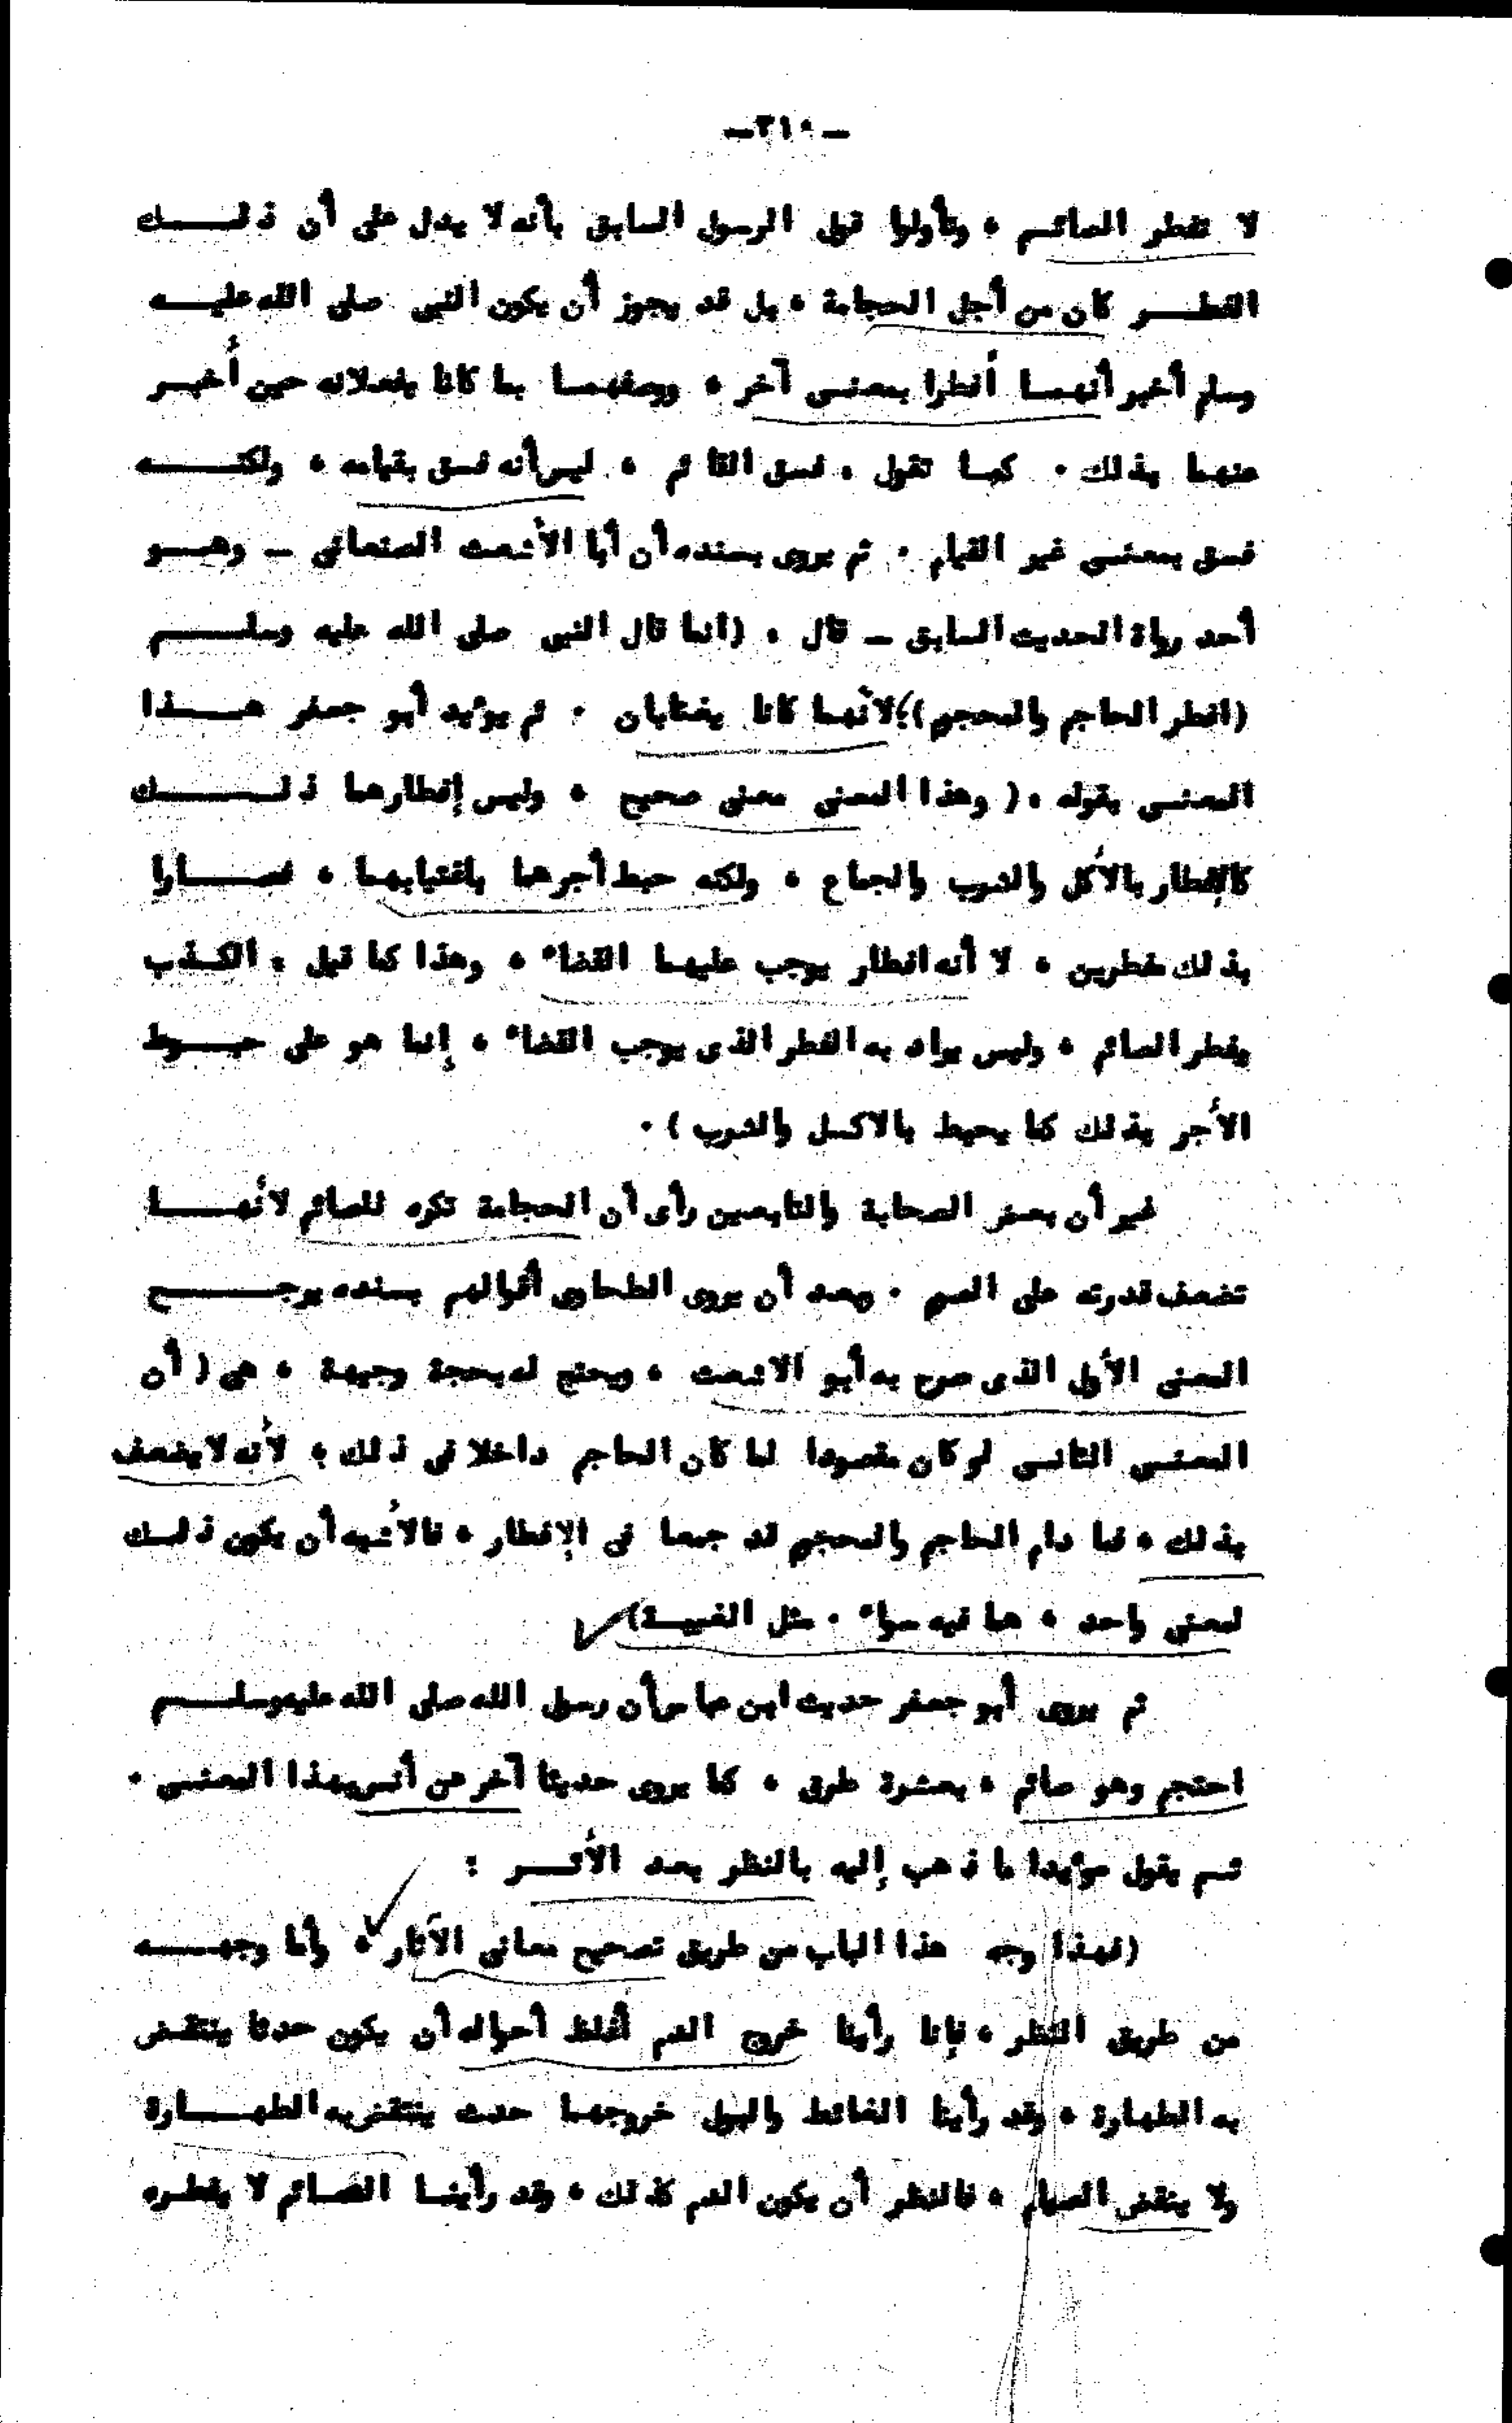 -٢١٠-
لا تفطر الصائم ، وتأولوا قول الرسول السابق بأنه لا يدل على أن ذلك
الفطر كان من أجل الحجامة ، بل قد يجوز أن يكون النبى صلى الله عليه
وسلم أخبر أنهما أفطرا بمعنى آخر ، ووصفهما بما كانا يفعلانه حين أُخبر
عنهما بذلك . كما تقول ، فسق القائم ، ليس أنه فسق بقيامه ، ولكنه
فسق بمعنى غير القيام . ثم يروى بسنده أن أبا الأشعث الصنعانى - وهو
أحد رواة الحديث السابق - قال ، (انما قال النبى صلى الله عليه وسلم
(افطر الحاجم والمحجوم)؛ لأنهما كانا يغتابان . ثم يؤيد أبو جعفر هذا
المعنى بقوله ،( وهذا المعنى معنى صحيح ، وليس إفطارهما ذلك
كالإفطار بالأكل والشرب والجماع ، ولكنه حبط أجرهما باغتيابهما ، فصارا
بذلك مفطرين ، لا أنه افطار يوجب عليهما القضاء ، وهذا كما قيل ، الكذب
يفطر الصائم ، وليس يراد به الفطر الذى يوجب القضاء ، إنما هو على حبوط
الأجر بذلك كما يحبط بالاكل والشرب ) .
غير أن بعض الصحابة والتابعين رأى أن الحجامة تكره للصائم لأنها
تضعف قدرته على الصوم . وبعد أن يروى الطحاوى أقوالهم بسنده يرجح
المعنى الأول الذى صرح به أبو الاشعث ، ويحتج له بحجة وجيهة ، هى ( أن
المعنى الثانى لو كان مقصودا لما كان الحاجم داخلا فى ذلك ؛ لأنه لا يضعف
بذلك ، فما دام الحاجم والمحجوم قد جمعا فى الإفطار ، فالأشبه أن يكون ذلك
لمعنى واحد ، هما فيه سواء . مثل الغيبة)
ثم يروى أبو جعفر حديث ابن عباس أن رسول الله صلى الله عليه وسلم
احتجم وهو صائم ، بعشرة طرق ، كما يروى حديثا آخر عن أنس بهذا المعنى .
ثم يقول مؤيدا ما ذهب إليه بالنظر بعد الأثر :
(فهذا وجه هذا الباب من طريق تصحيح معانى الآثار ، وأما وجهه
من طريق النظر ، فإنا رأينا خروج الدم أغلظ أحواله أن يكون حدثا ينتقض
به الطهارة ، وقد رأينا الغائط والبول خروجهما حدث ينتقض به الطهارة
ولا ينقض الصيام ، فالنظر أن يكون الدم كذلك ، وقد رأينا الصائم لا يفطره